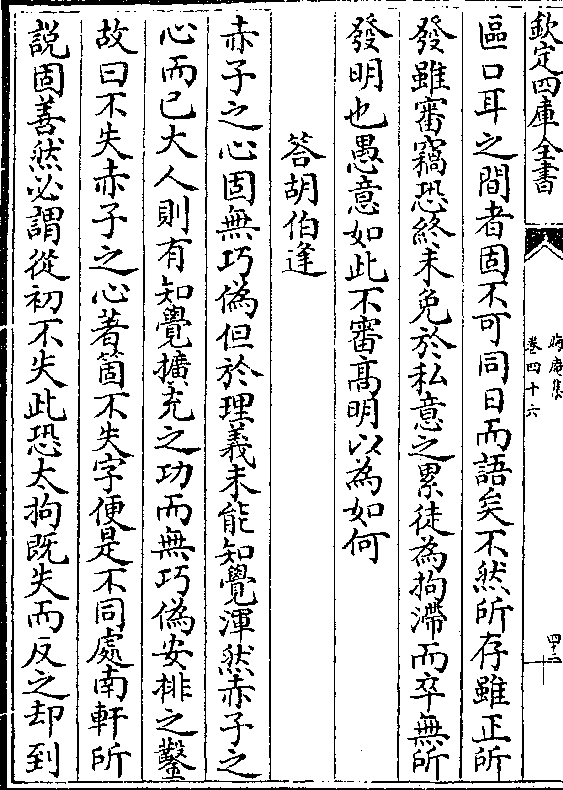 欽定四庫全書
晦庵集
卷四十六
四十二
區口耳之間者固不可同日而語矣不然所存雖正所
發雖審竊恐終未免於私意之累徒為拘滯而卒無所
發明也愚意如此不審高明以為如何
荅胡伯逢
赤子之心固無巧偽但於理義未能知覺渾然赤子之
心而已大人則有知覺擴充之功而無巧偽安排之鑿
故曰不失赤子之心著箇不失字便是不同處南軒所
説固善然必謂從初不失此恐太拘既失而反之却到